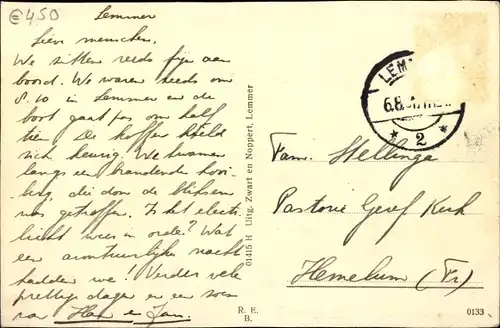 €450
Lemmer
Lieve menschen,
We zitten reeds fijn aan
boord. We waren reeds om
8.10 in Lemmer en de
boot gaat pas om half
tien. De koffer hield
zich heurig. We kwamen
langs een brandende hooi-
berg, die door de bliksem
was getroffen. Is het electr.
licht weer in orde? Wat
een avontuurlijke nacht
hadden we! Verder vele
prettige dagen en een
Han en Jan.
01415 H Uitg. Zwart en Noppert, Lemmer
R. E.
B.
LEM
6.8
* 2 *
Fam. Stellinga
Pastorie Geref Kerk
Hemelum (Fr)
0133